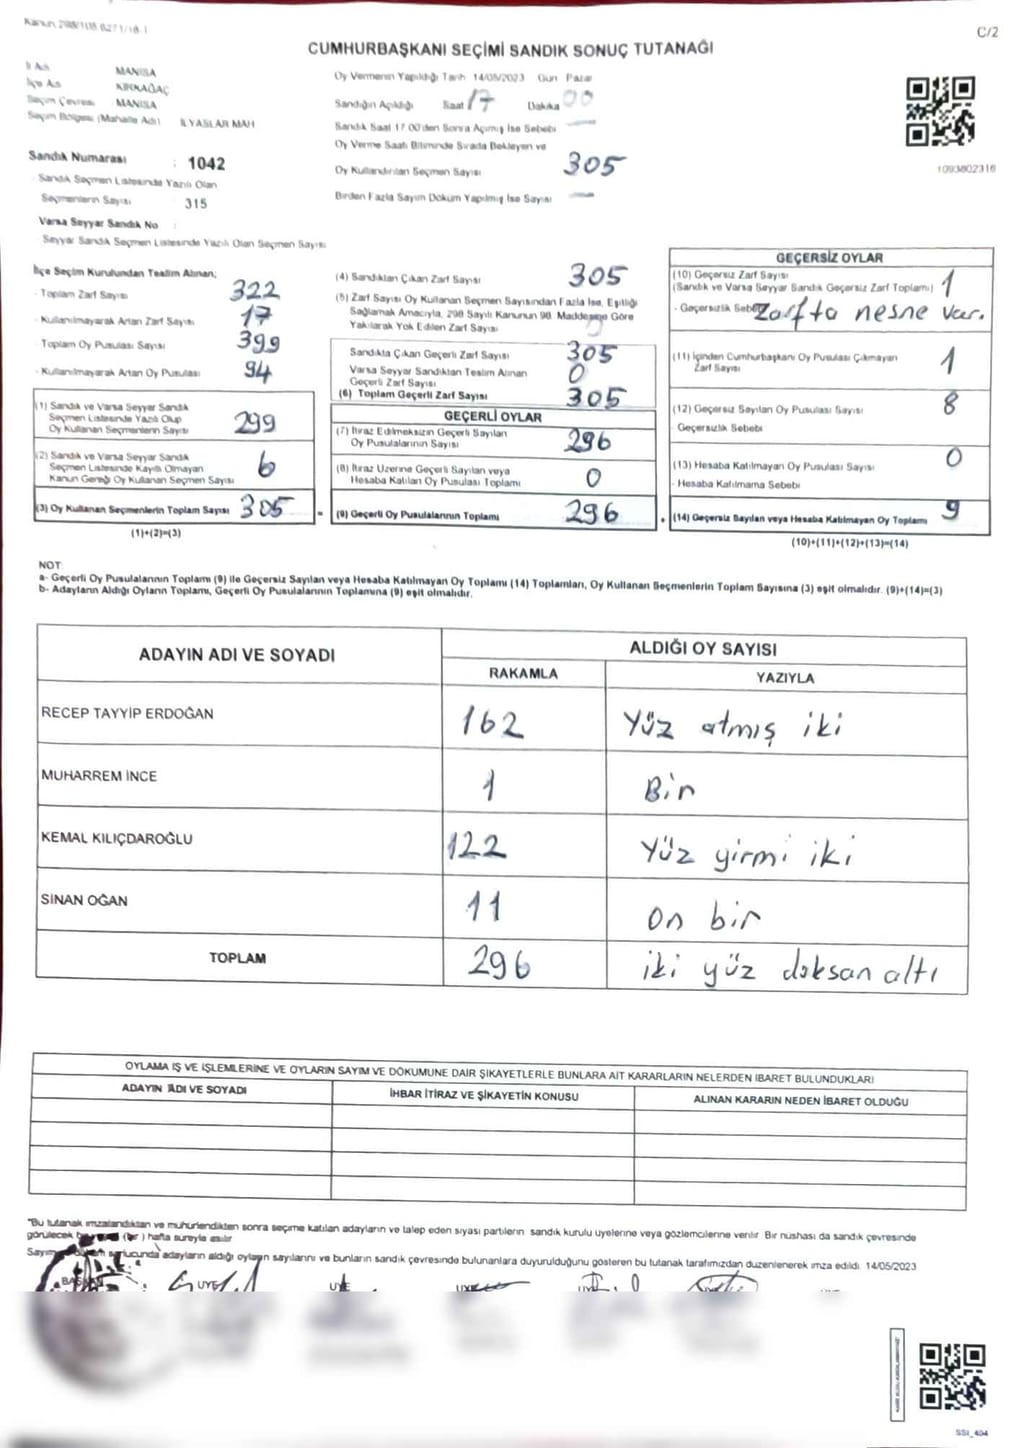 Kanun 298/105 627 1/18-1
C/2
CUMHURBAŞKANI SEÇİMİ SANDIK SONUÇ TUTANAĞI
İl Adı MANİSA
İlçe Adı KIRKAĞAÇ
Seçim Çevresi MANİSA
Seçim Bölgesi (Mahalle Adı) İLYASLAR MAH
Sandık Numarası : 1042
- Sandık Seçmen Listesinde Yazılı Olan
Seçmenlerin Sayısı 315
Varsa Seyyar Sandık No :
- Seyyar Sandık Seçmen Listesinde Yazılı Olan Seçmen Sayısı
Oy Vermenin Yapıldığı Tarih 14/05/2023 Gün Pazar
Sandığın Açıldığı Saat 17 Dakika 00
Sandık Saat 17 00'den Sonra Açılmış İse Sebebi —
Oy Verme Saati Bitiminde Sırada Bekleyen ve
Oy Kullandırılan Seçmen Sayısı 305
Birden Fazla Sayım Döküm Yapılmış İse Sayısı —
1093802316
İlçe Seçim Kurulundan Teslim Alınan;
- Toplam Zarf Sayısı 322
- Kullanılmayarak Artan Zarf Sayısı 17
- Toplam Oy Pusulası Sayısı 399
- Kullanılmayarak Artan Oy Pusulası 94
(1) Sandık ve Varsa Seyyar Sandık
Seçmen Listesinde Yazılı Olup
Oy Kullanan Seçmenlerin Sayısı 299
(2) Sandık ve Varsa Seyyar Sandık
Seçmen Listesinde Kayıtlı Olmayan
Kanun Gereği Oy Kullanan Seçmen Sayısı 6
(3) Oy Kullanan Seçmenlerin Toplam Sayısı 305 =
(1)+(2)=(3)
(4) Sandıktan Çıkan Zarf Sayısı 305
(5) Zarf Sayısı Oy Kullanan Seçmen Sayısından Fazla İse, Eşitliği
Sağlamak Amacıyla, 298 Sayılı Kanunun 98. Maddesine Göre
Yakılarak Yok Edilen Zarf Sayısı 0
Sandıkta Çıkan Geçerli Zarf Sayısı 305
Varsa Seyyar Sandıktan Teslim Alınan
Geçerli Zarf Sayısı 0
(6) Toplam Geçerli Zarf Sayısı 305
GEÇERLİ OYLAR
(7) İtiraz Edilmeksizin Geçerli Sayılan
Oy Pusulalarının Sayısı 296
(8) İtiraz Üzerine Geçerli Sayılan veya
Hesaba Katılan Oy Pusulası Toplamı 0
(9) Geçerli Oy Pusulalarının Toplamı 296 +
GEÇERSİZ OYLAR
(10) Geçersiz Zarf Sayısı
(Sandık ve Varsa Seyyar Sandık Geçersiz Zarf Toplamı) 1
- Geçersizlik Sebebi Zarfta nesne var.
(11) İçinden Cumhurbaşkanı Oy Pusulası Çıkmayan
Zarf Sayısı 1
(12) Geçersiz Sayılan Oy Pusulası Sayısı 8
- Geçersizlik Sebebi
(13) Hesaba Katılmayan Oy Pusulası Sayısı 0
- Hesaba Katılmama Sebebi
(14) Geçersiz Sayılan veya Hesaba Katılmayan Oy Toplamı 9
(10)+(11)+(12)+(13)=(14)
NOT:
a- Geçerli Oy Pusulalarının Toplamı (9) ile Geçersiz Sayılan veya Hesaba Katılmayan Oy Toplamı (14) Toplamları, Oy Kullanan Seçmenlerin Toplam Sayısına (3) eşit olmalıdır. (9)+(14)=(3)
b- Adayların Aldığı Oyların Toplamı, Geçerli Oy Pusulalarının Toplamına (9) eşit olmalıdır.
ADAYIN ADI VE SOYADI ALDIĞI OY SAYISI
RAKAMLA YAZIYLA
RECEP TAYYİP ERDOĞAN 162 Yüz atmış iki
MUHARREM İNCE 1 Bir
KEMAL KILIÇDAROĞLU 122 Yüz yirmi iki
SİNAN OĞAN 11 on bir
TOPLAM 296 iki yüz doksan altı
OYLAMA İŞ VE İŞLEMLERİNE VE OYLARIN SAYIM VE DÖKÜMÜNE DAİR ŞİKAYETLERLE BUNLARA AİT KARARLARIN NELERDEN İBARET BULUNDUKLARI
ADAYIN ADI VE SOYADI İHBAR İTİRAZ VE ŞİKAYETİN KONUSU ALINAN KARARIN NEDEN İBARET OLDUĞU
"Bu tutanak imzalandıktan ve mühürlendikten sonra seçime katılan adayların ve talep eden siyasi partilerin sandık kurulu üyelerine veya gözlemcilerine verilir Bir nüshası da sandık çevresinde
görülecek (bir ) hafta süreyle asılır
Sayım sonucunda adayların aldığı oyların sayılarını ve bunların sandık çevresinde bulunanlara duyurulduğunu gösteren bu tutanak tarafımızdan düzenlenerek imza edildi. 14/05/2023
BAŞKAN ÜYE ÜYE ÜYE ÜYE
SSI_404